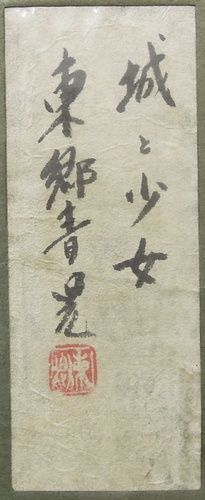 城と少女
東郷青児